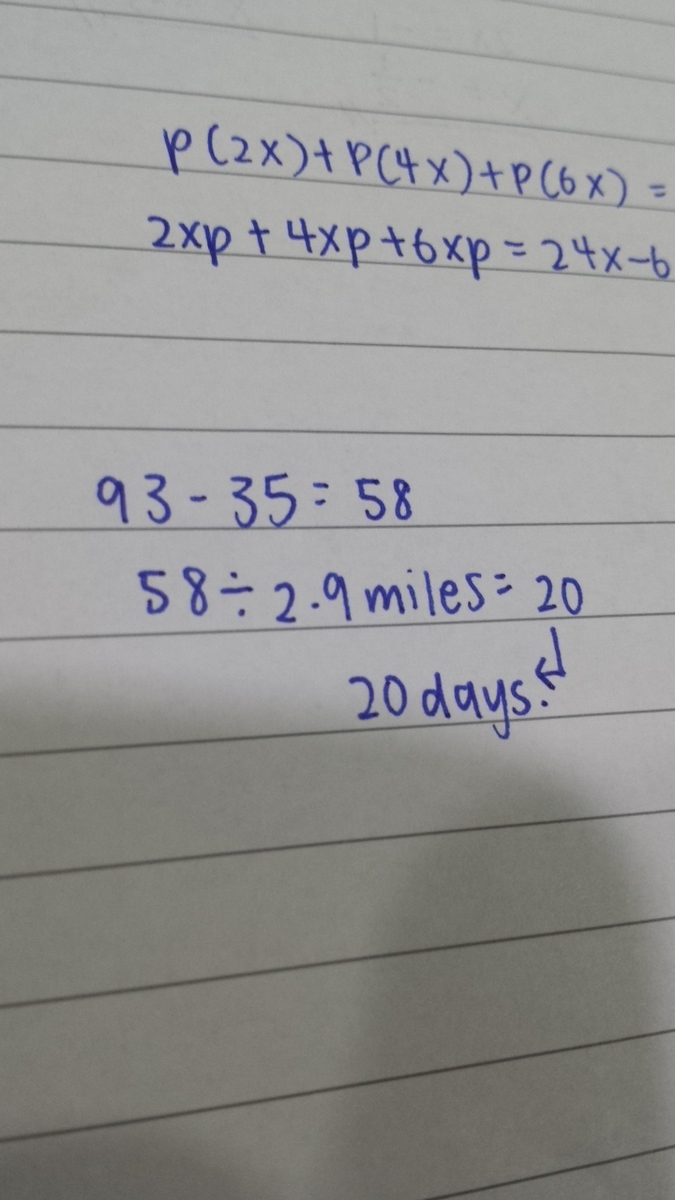 p(2x)+p(4x)+p(6x) =
2xp + 4xp+6xp = 24x-6
93 - 35 = 58
58 ÷ 2.9 miles = 20
20 days.